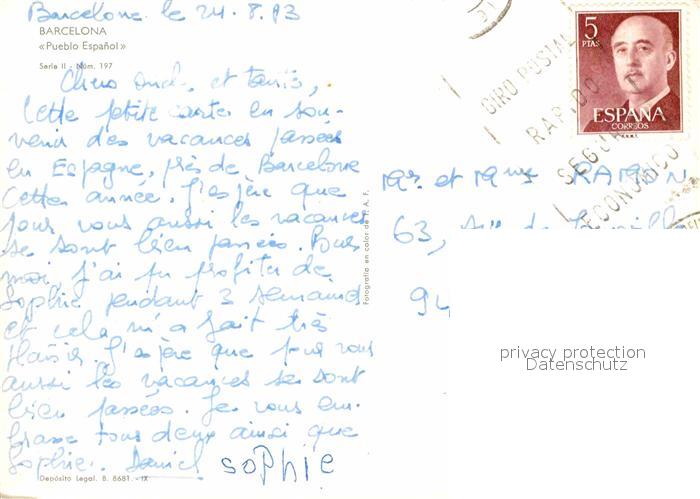 Barcelone le 24.8.83
BARCELONA
«Pueblo Español»
Serie II - Núm. 197
Chers oncle et tantie,
Cette petite carte en sou-
venir des vacances passées
en Espagne, près de Barcelone
cette année. J'espère que
pour vous aussi les vacances
se sont bien passées. Pour
moi, j'ai pu profiter de
Sophie pendant 3 semaines
et cela m'a fait très
plaisir. J'espère que pour vous
aussi les vacances se sont
bien passées. Je vous em-
brasse tous deux ainsi que
Sophie. Daniel sophie
Depósito Legal. B. 8681. - IX
Fotografía en color de
5
PTAS
ESPAÑA
CORREOS
GIRO POSTAL
RAPIDO
SEGURO
ECONOMICO
Mr et Mme RAMON
63, rue de
94
privacy protection
Datenschutz